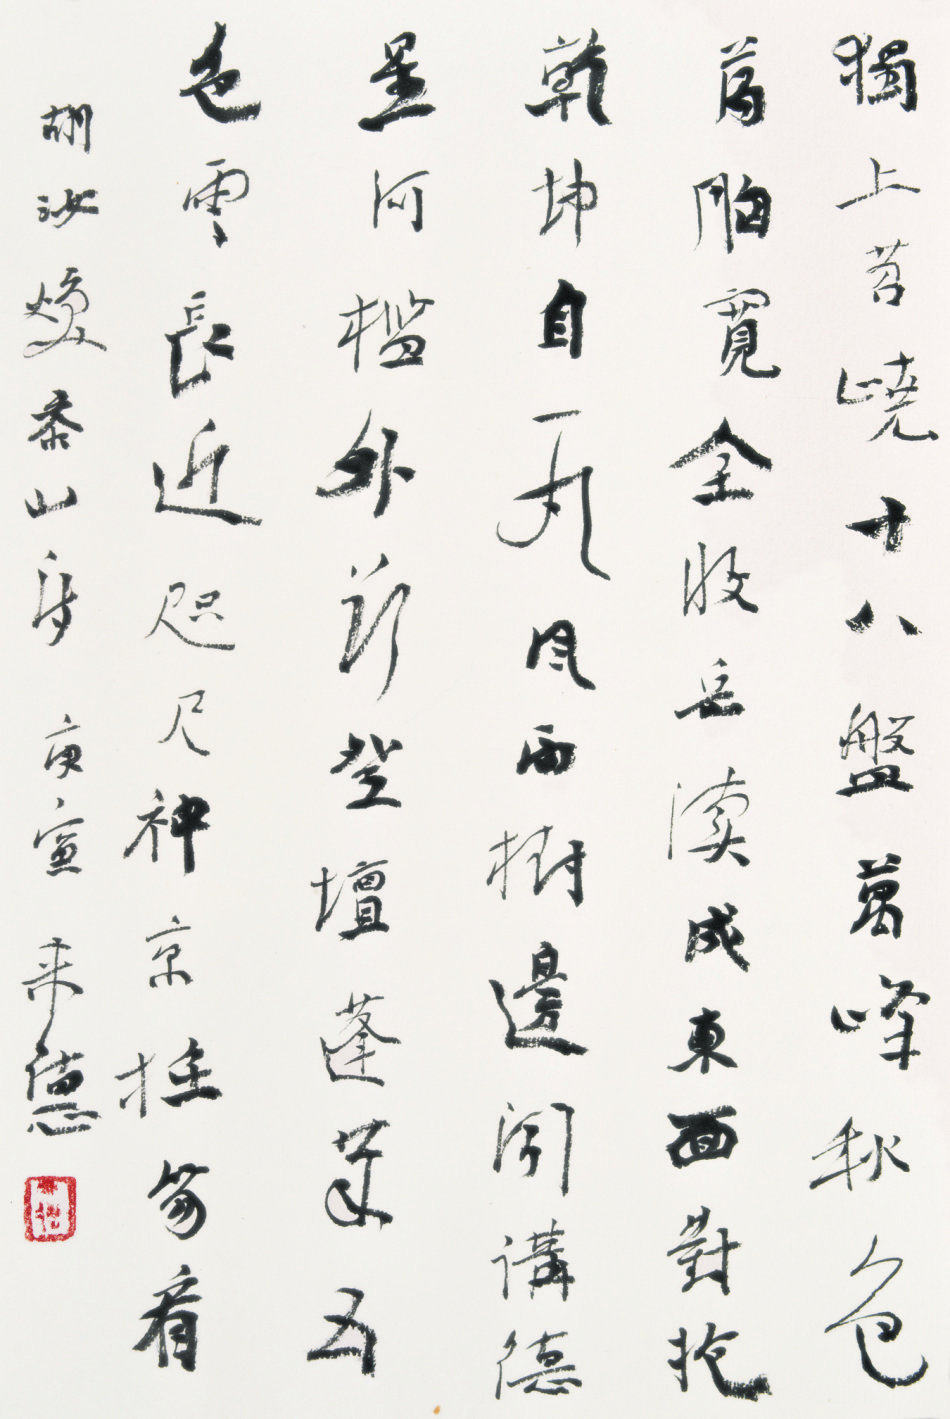 獨上苕嶢十八盤萬峰秋色
蕩胸寬全收岳瀆成東面對抱
乾坤自一丸風雨樹邊聞講德
星河檻外節登壇蓬萊五
色雲長近咫尺神京挂笏看
胡汝煥泰山 庚寅 來德